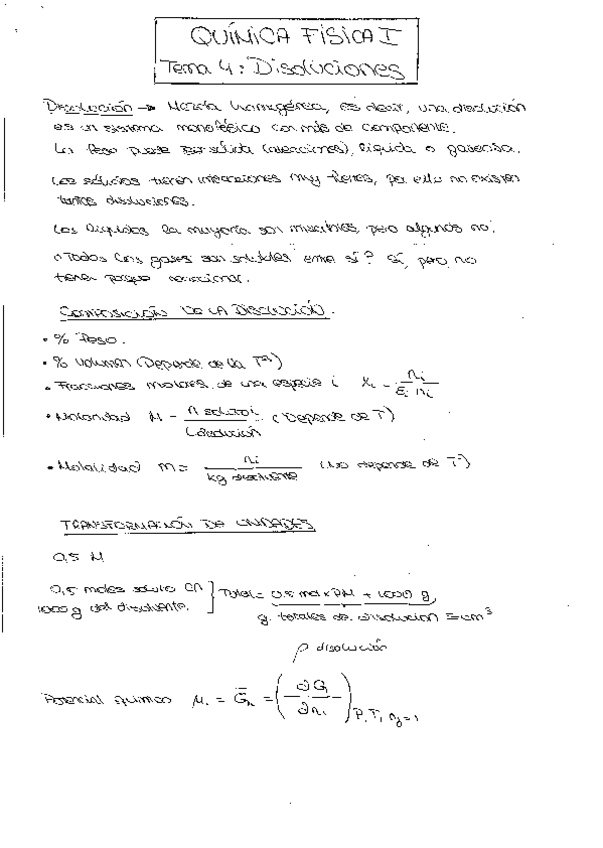 QUÍMICA FÍSICA I
Tema 4: Disoluciones
Disolución → Mezcla homogénea, es decir, una disolución
es un sistema monofásico con más de componente.
La fase puede ser sólida (aleaciones), líquida o gaseosa.
Los sólidos tienen interacciones muy fuertes, por ello no existen
tantas disoluciones.
Los líquidos la mayoría son miscibles, pero algunos no.
¿Todos los gases son solubles entre sí? Sí, pero no
tienen porque reaccionar.
COMPOSICIÓN DE LA DISOLUCIÓN.
• % Peso.
• % Volumen (Depende de la Tª)
• Fracciones molares de una especie i xi = ni / Σi ni
• Molaridad M = n soluto i / L disolución (Depende de T)
• Molalidad m = ni / kg disolvente (No depende de T)
TRANSFORMACIÓN DE UNIDADES
0,5 M
0,5 moles soluto en
1000 g del disolvente. } Total = 0,5 mol x PM + 1000 g
g. totales de disolución = cm³
ρ disolución
Potencial químico μi = G̅i = (∂G / ∂ni) P, T, nj=1